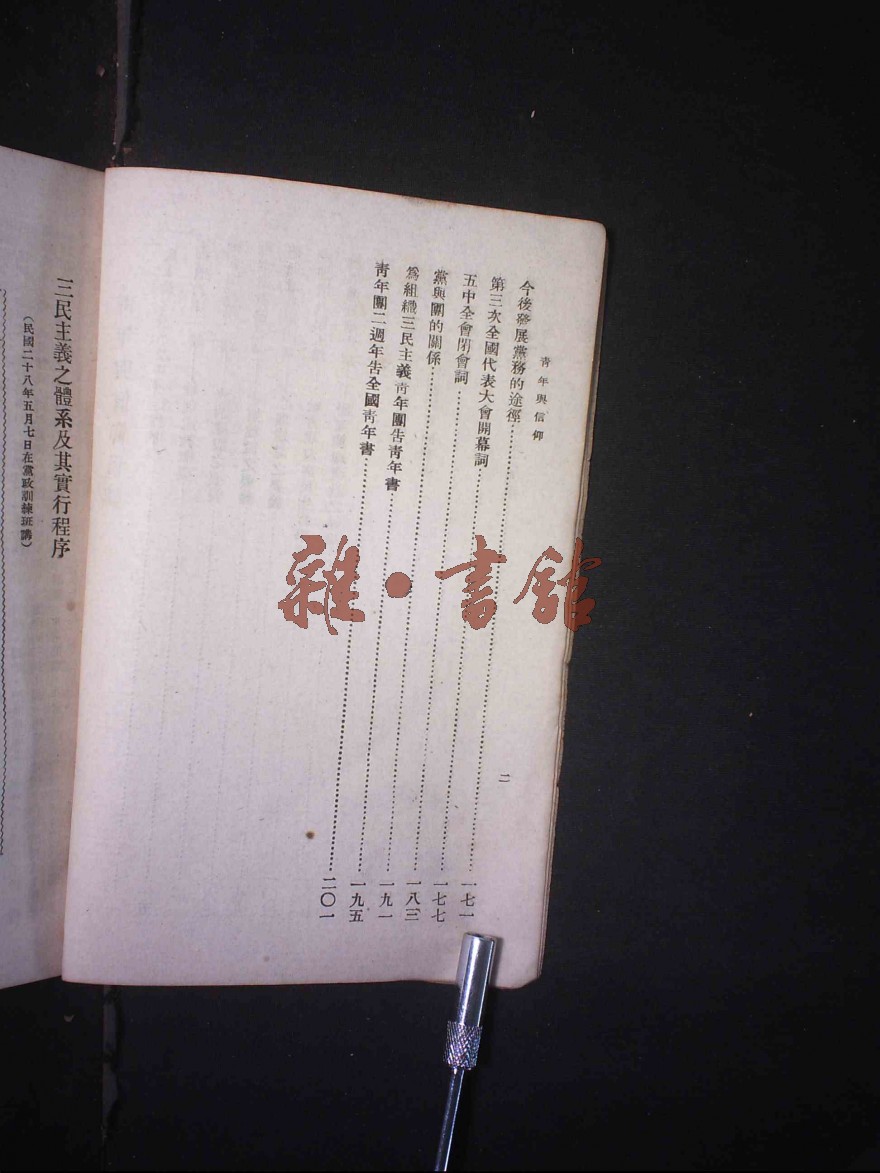 青年與信仰
二
今後發展黨務的途徑……一七一
第三次全國代表大會開幕詞……一七七
五中全會閉會詞……一八三
黨與團的關係……一九一
爲組織三民主義靑年團告靑年書……一九五
靑年團二週年吿全國靑年書……二〇一
三民主義之體系及其實行程序
（民國二十八年五月七日在黨政訓練班講）
雜·書館